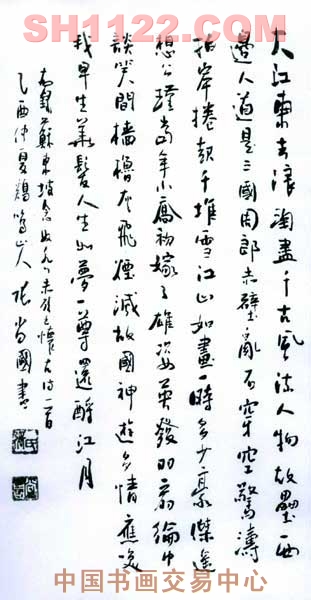 SH1122.COM
大江東去浪淘盡千古風流人物故壘西
邊人道是三國周郎赤壁亂石穿空驚濤
拍岸捲起千堆雪江山如畫一時多少豪傑遙
想公瑾當年小喬初嫁了雄姿英發羽扇綸巾
談笑間檣櫓灰飛煙滅故國神遊多情應笑
我早生華髮人生如夢一尊還酹江月
蘇東坡念奴嬌赤壁懷古詞一首
乙酉仲夏鶏鳴山人張尚國書
中国书画交易中心